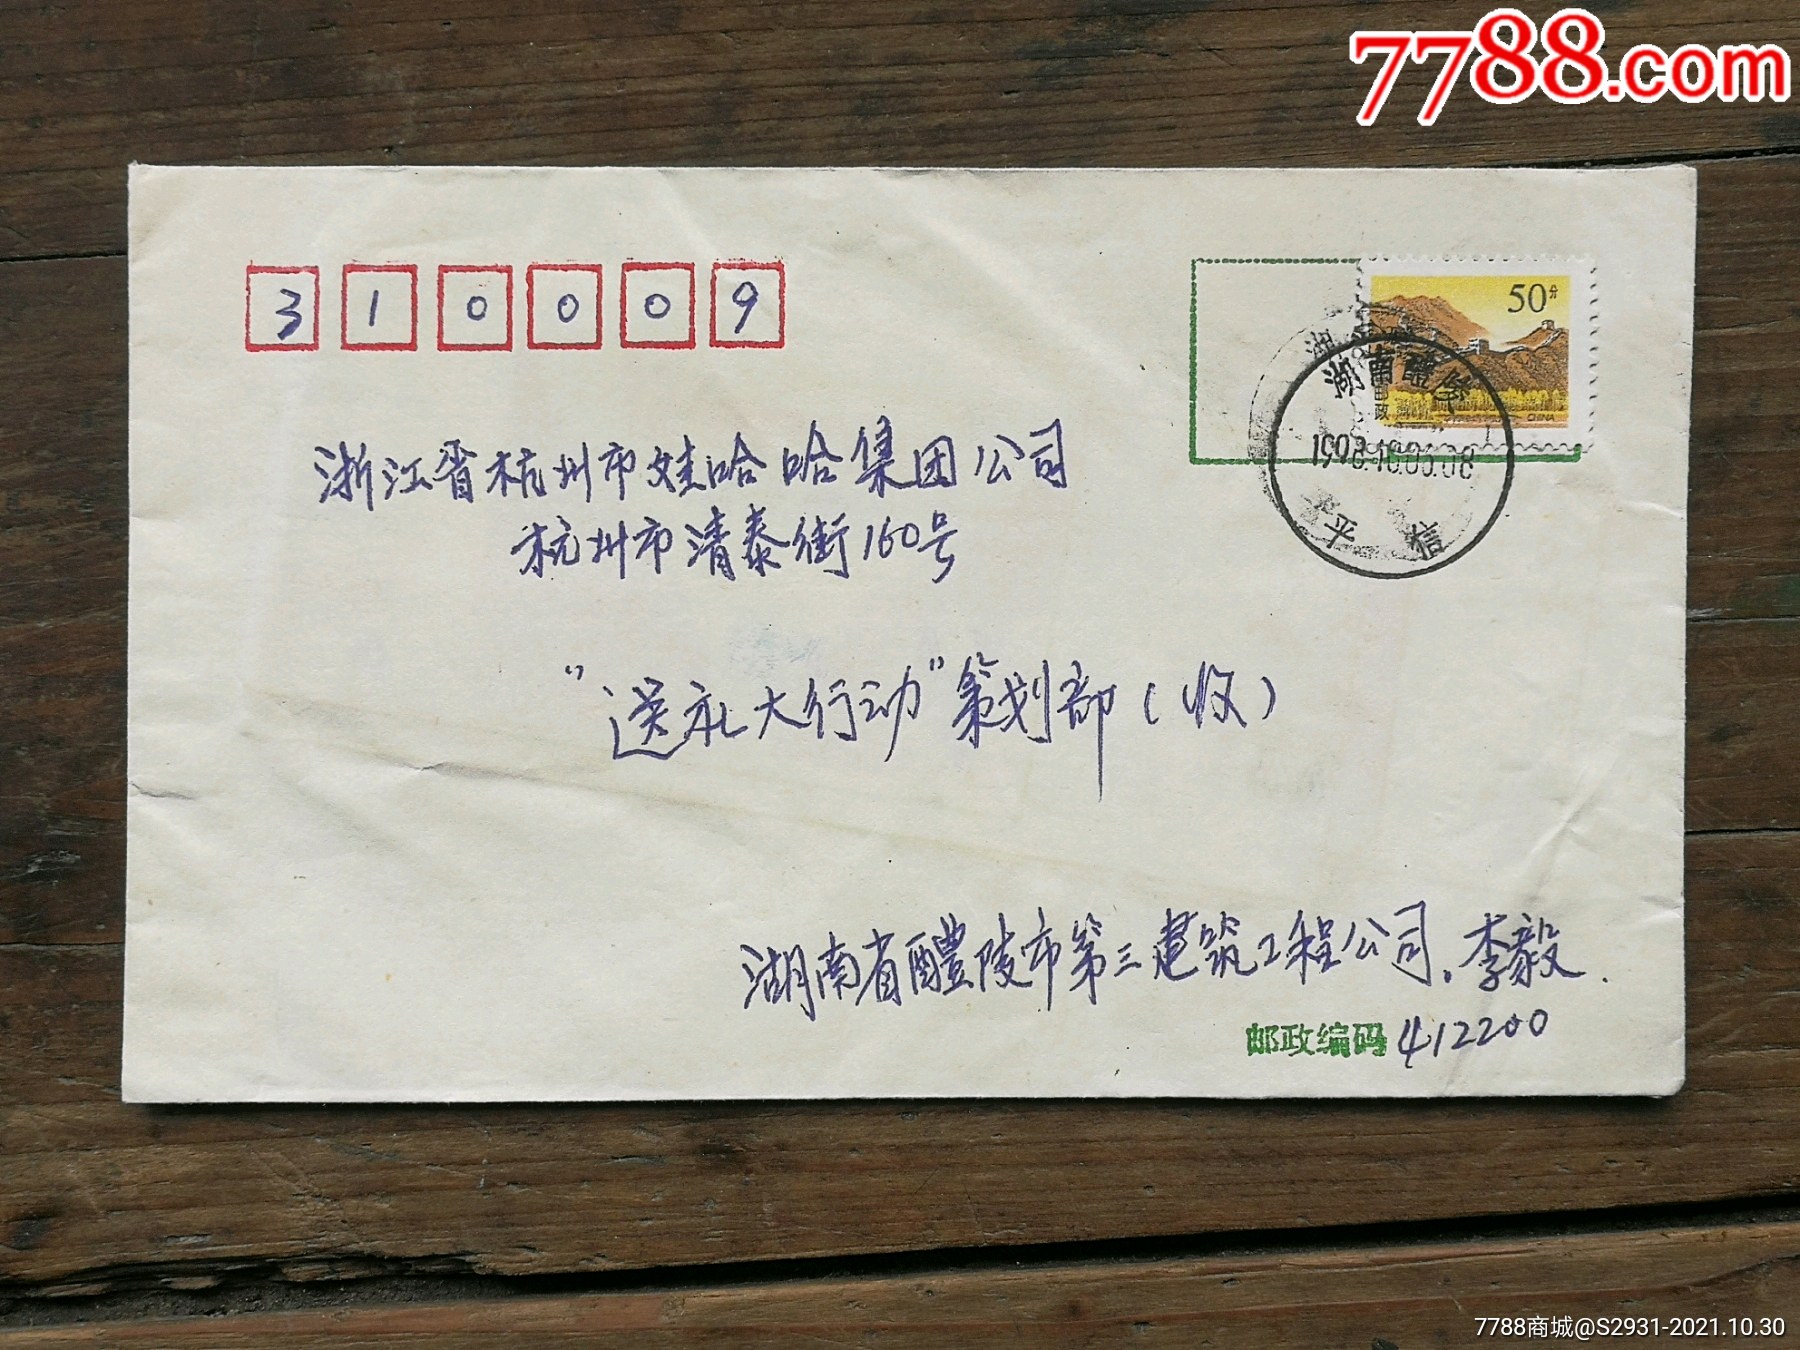 7788.com
310009
50分
中国邮政
CHINA
湖南醴陵
平信
浙江省杭州市娃哈哈集团公司
杭州市清泰街160号
“送礼大行动”策划部(收)
湖南省醴陵市第三建筑工程公司.李毅.
邮政编码 412200
7788商城@S2931-2021.10.30